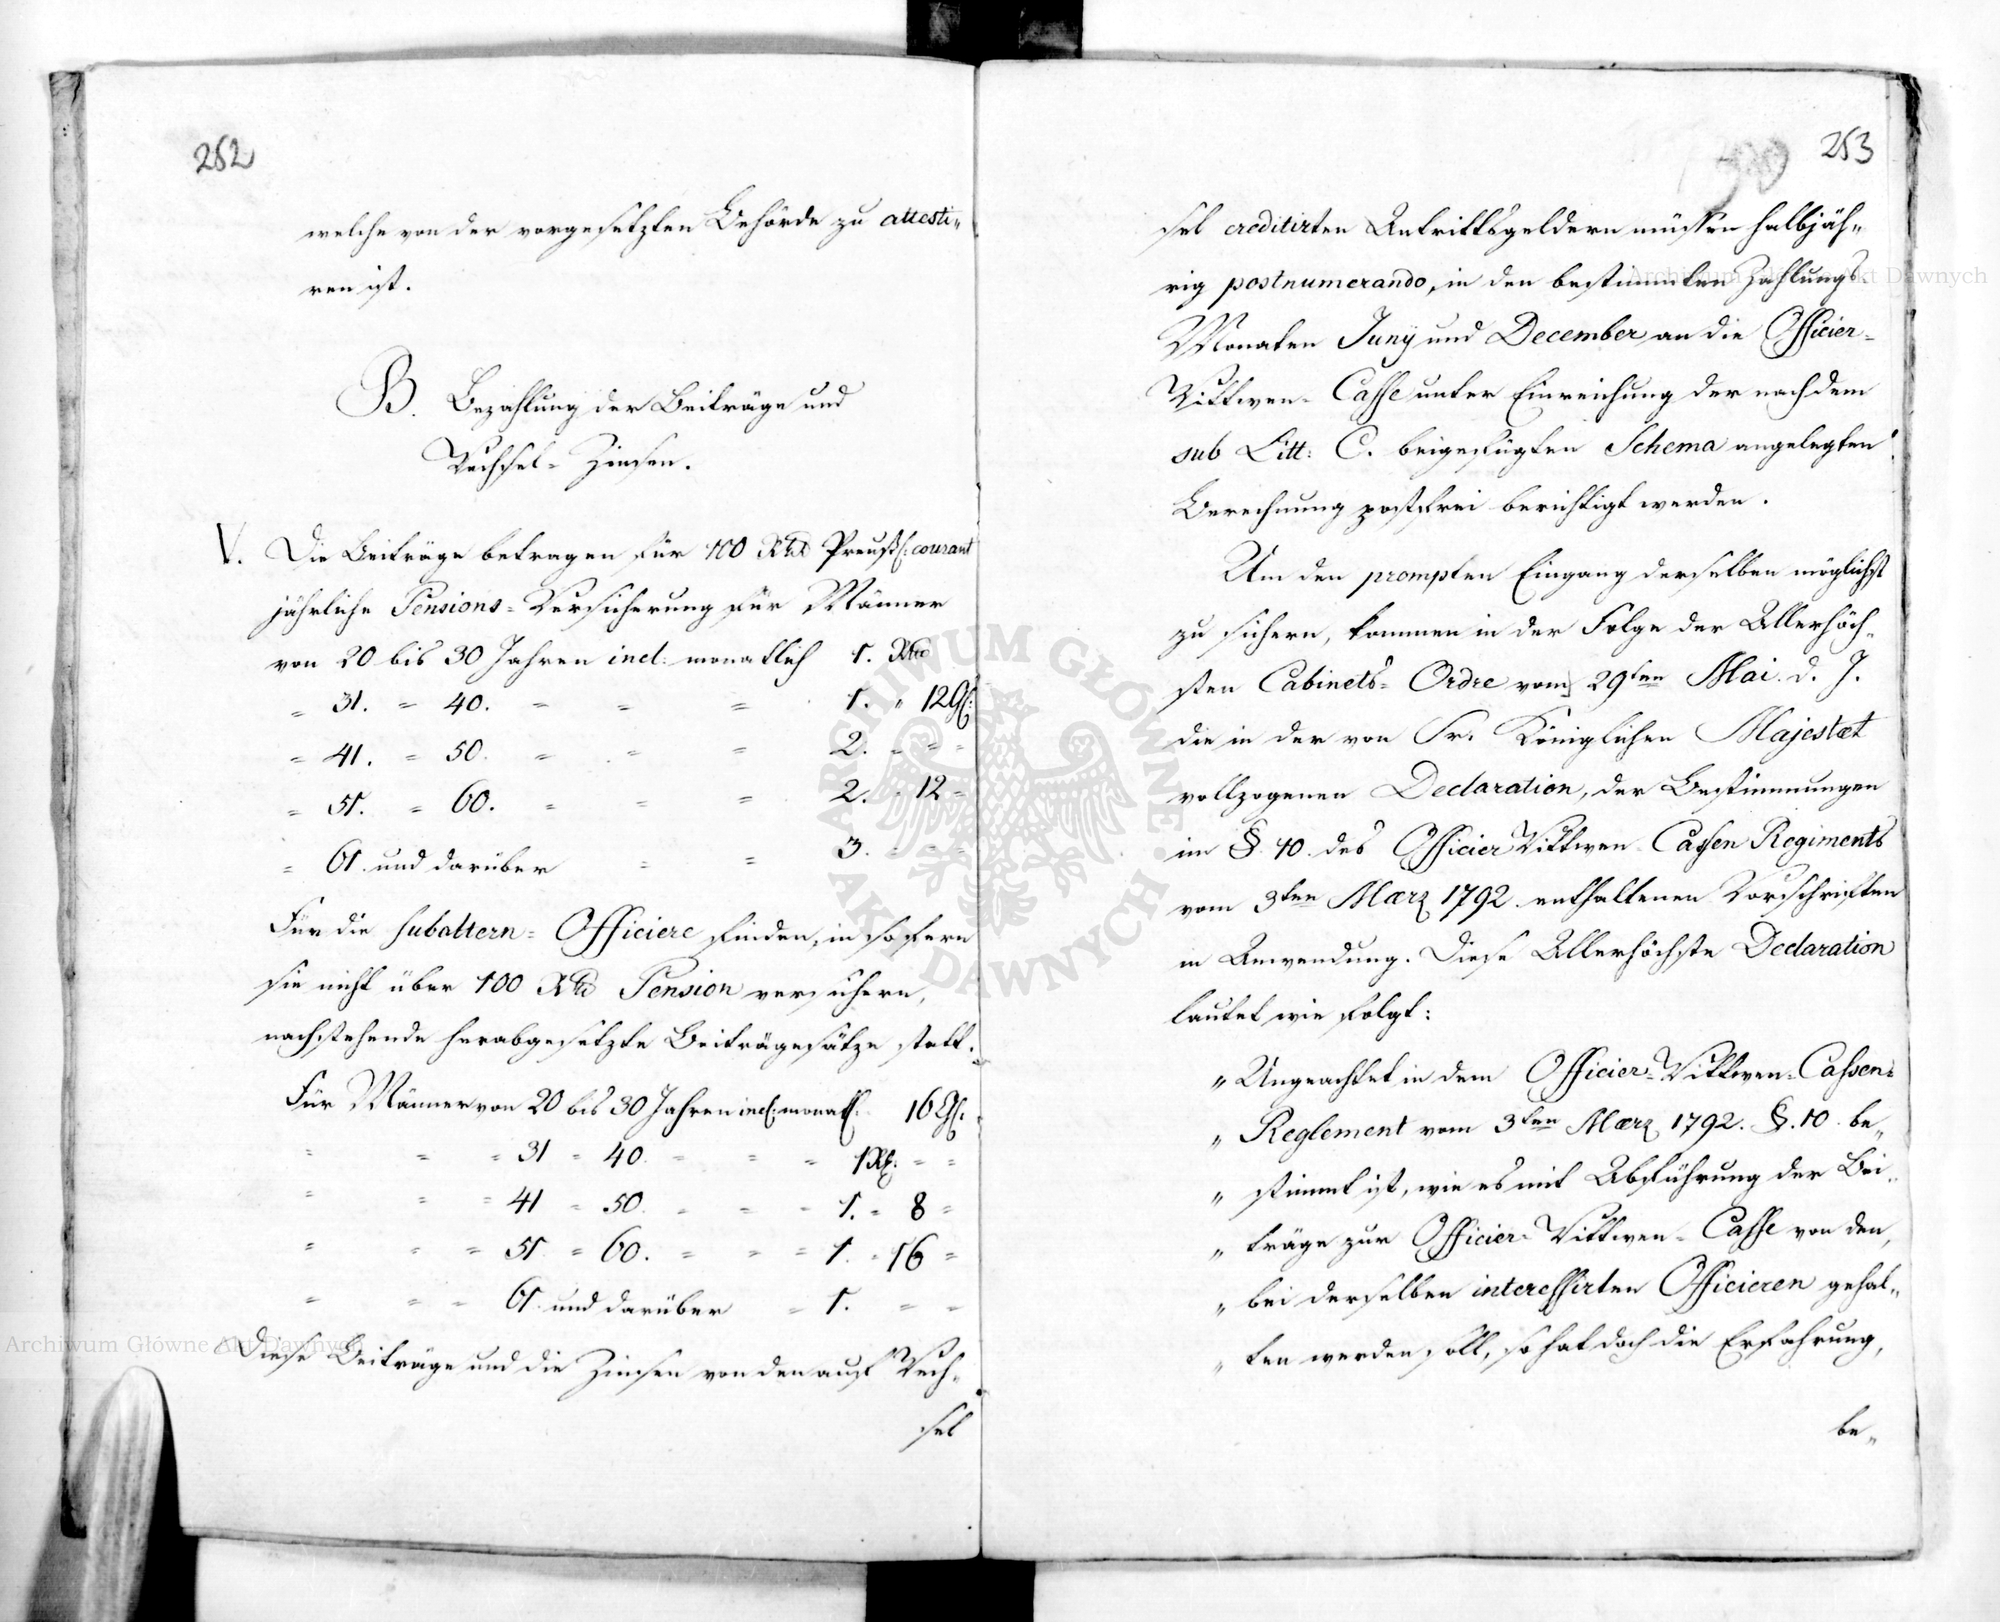 252
welche von der vorgesetzten Behörde zu attesti„
ren ist.
B. Bezahlung der Beiträge und
Wechsel- Zinsen.
V. Die Beiträge betragen für 100 Rthlr Preuß: courant
jährliche Pensions- Versicherung für Männer
von 20 bis 30 Jahren incl: monatlich 1. Rthlr
" 31. " 40. " " " 1. " 12 Gl:
" 41. " 50. " " " 2. " " "
" 51. " 60. " " " 2. " 12 "
" 61. und darüber " " 3. " " "
Für die subaltern- Officiere finden, in sofern
sie nicht über 100 Rthlr Pension versichern,
nachstehende herabgesetzte Beiträgesätze statt.
Für Männer von 20 bis 30 Jahren incl: monatl: 16 Gl:
" " " 31 " 40. " " " 1 Rl: " "
" " " 41 " 50. " " " 1. " 8 "
" " " 51 " 60. " " " 1. " 16 "
" " " 61. und darüber " 1. " "
Diese Beiträge und die Zinsen von den auf Wech„
sel
253
sel creditirten Antrittsgeldern müssen halbjäh„
rig postnumerando, in den bestimmten Zahlungs-
Monaten Juny und December an die Officier-
Wittwen- Casse unter Einreichung der nach dem
sub Litt: C. beigefügten Schema angelegten
Berechnung postfrei berichtigt werden.
Um den prompten Eingang derselben möglichst
zu sichern, kommen in der Folge der Allerhöch„
sten Cabinets- Ordre vom 29ten Mai. d. J.
die in der von Sr. Königlichen Majestæt
vollzogenen Declaration, der Bestimmungen
im §. 10. des Officier Wittwen Cassen Regiments
vom 3ten Mærz 1792. enthaltenen Vorschriften
in Anwendung. Diese Allerhöchste Declaration
lautet wie folgt:
„ Ungeachtet in dem Officier- Wittwen- Cassen-
„ Reglement vom 3ten Mærz 1792. §. 10. be„
„ stimmt ist, wie es mit Abführung der Bei„
„ träge zur Officier- Wittwen- Casse von den,
„ bei derselben interessirten Officieren gehal„
„ ten werden soll, so hat doch die Erfahrung,
be„
Archiwum Główne Akt Dawnych
Archiwum Główne Akt Dawnych
ARCHIWUM GŁÓWNE AKT DAWNYCH